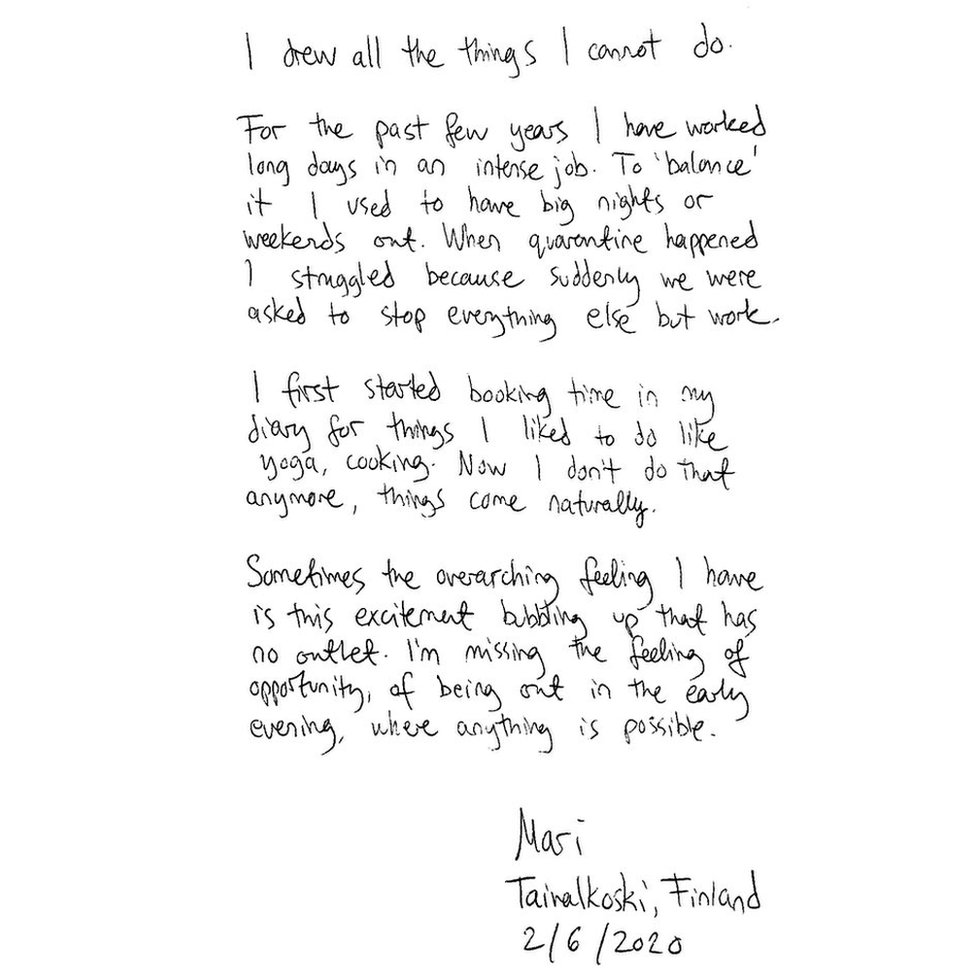 I drew all the things I cannot do.
For the past few years I have worked
long days in an intense job. To 'balance'
it I used to have big nights or
weekends out. When quarantine happened
I struggled because suddenly we were
asked to stop everything else but work.
I first started booking time in my
diary for things I liked to do like
yoga, cooking. Now I don't do that
anymore, things come naturally.
Sometimes the overarching feeling I have
is this excitement bubbling up that has
no outlet. I'm missing the feeling of
opportunity, of being out in the early
evening, where anything is possible.
Mari
Taivalkoski, Finland
2/6/2020